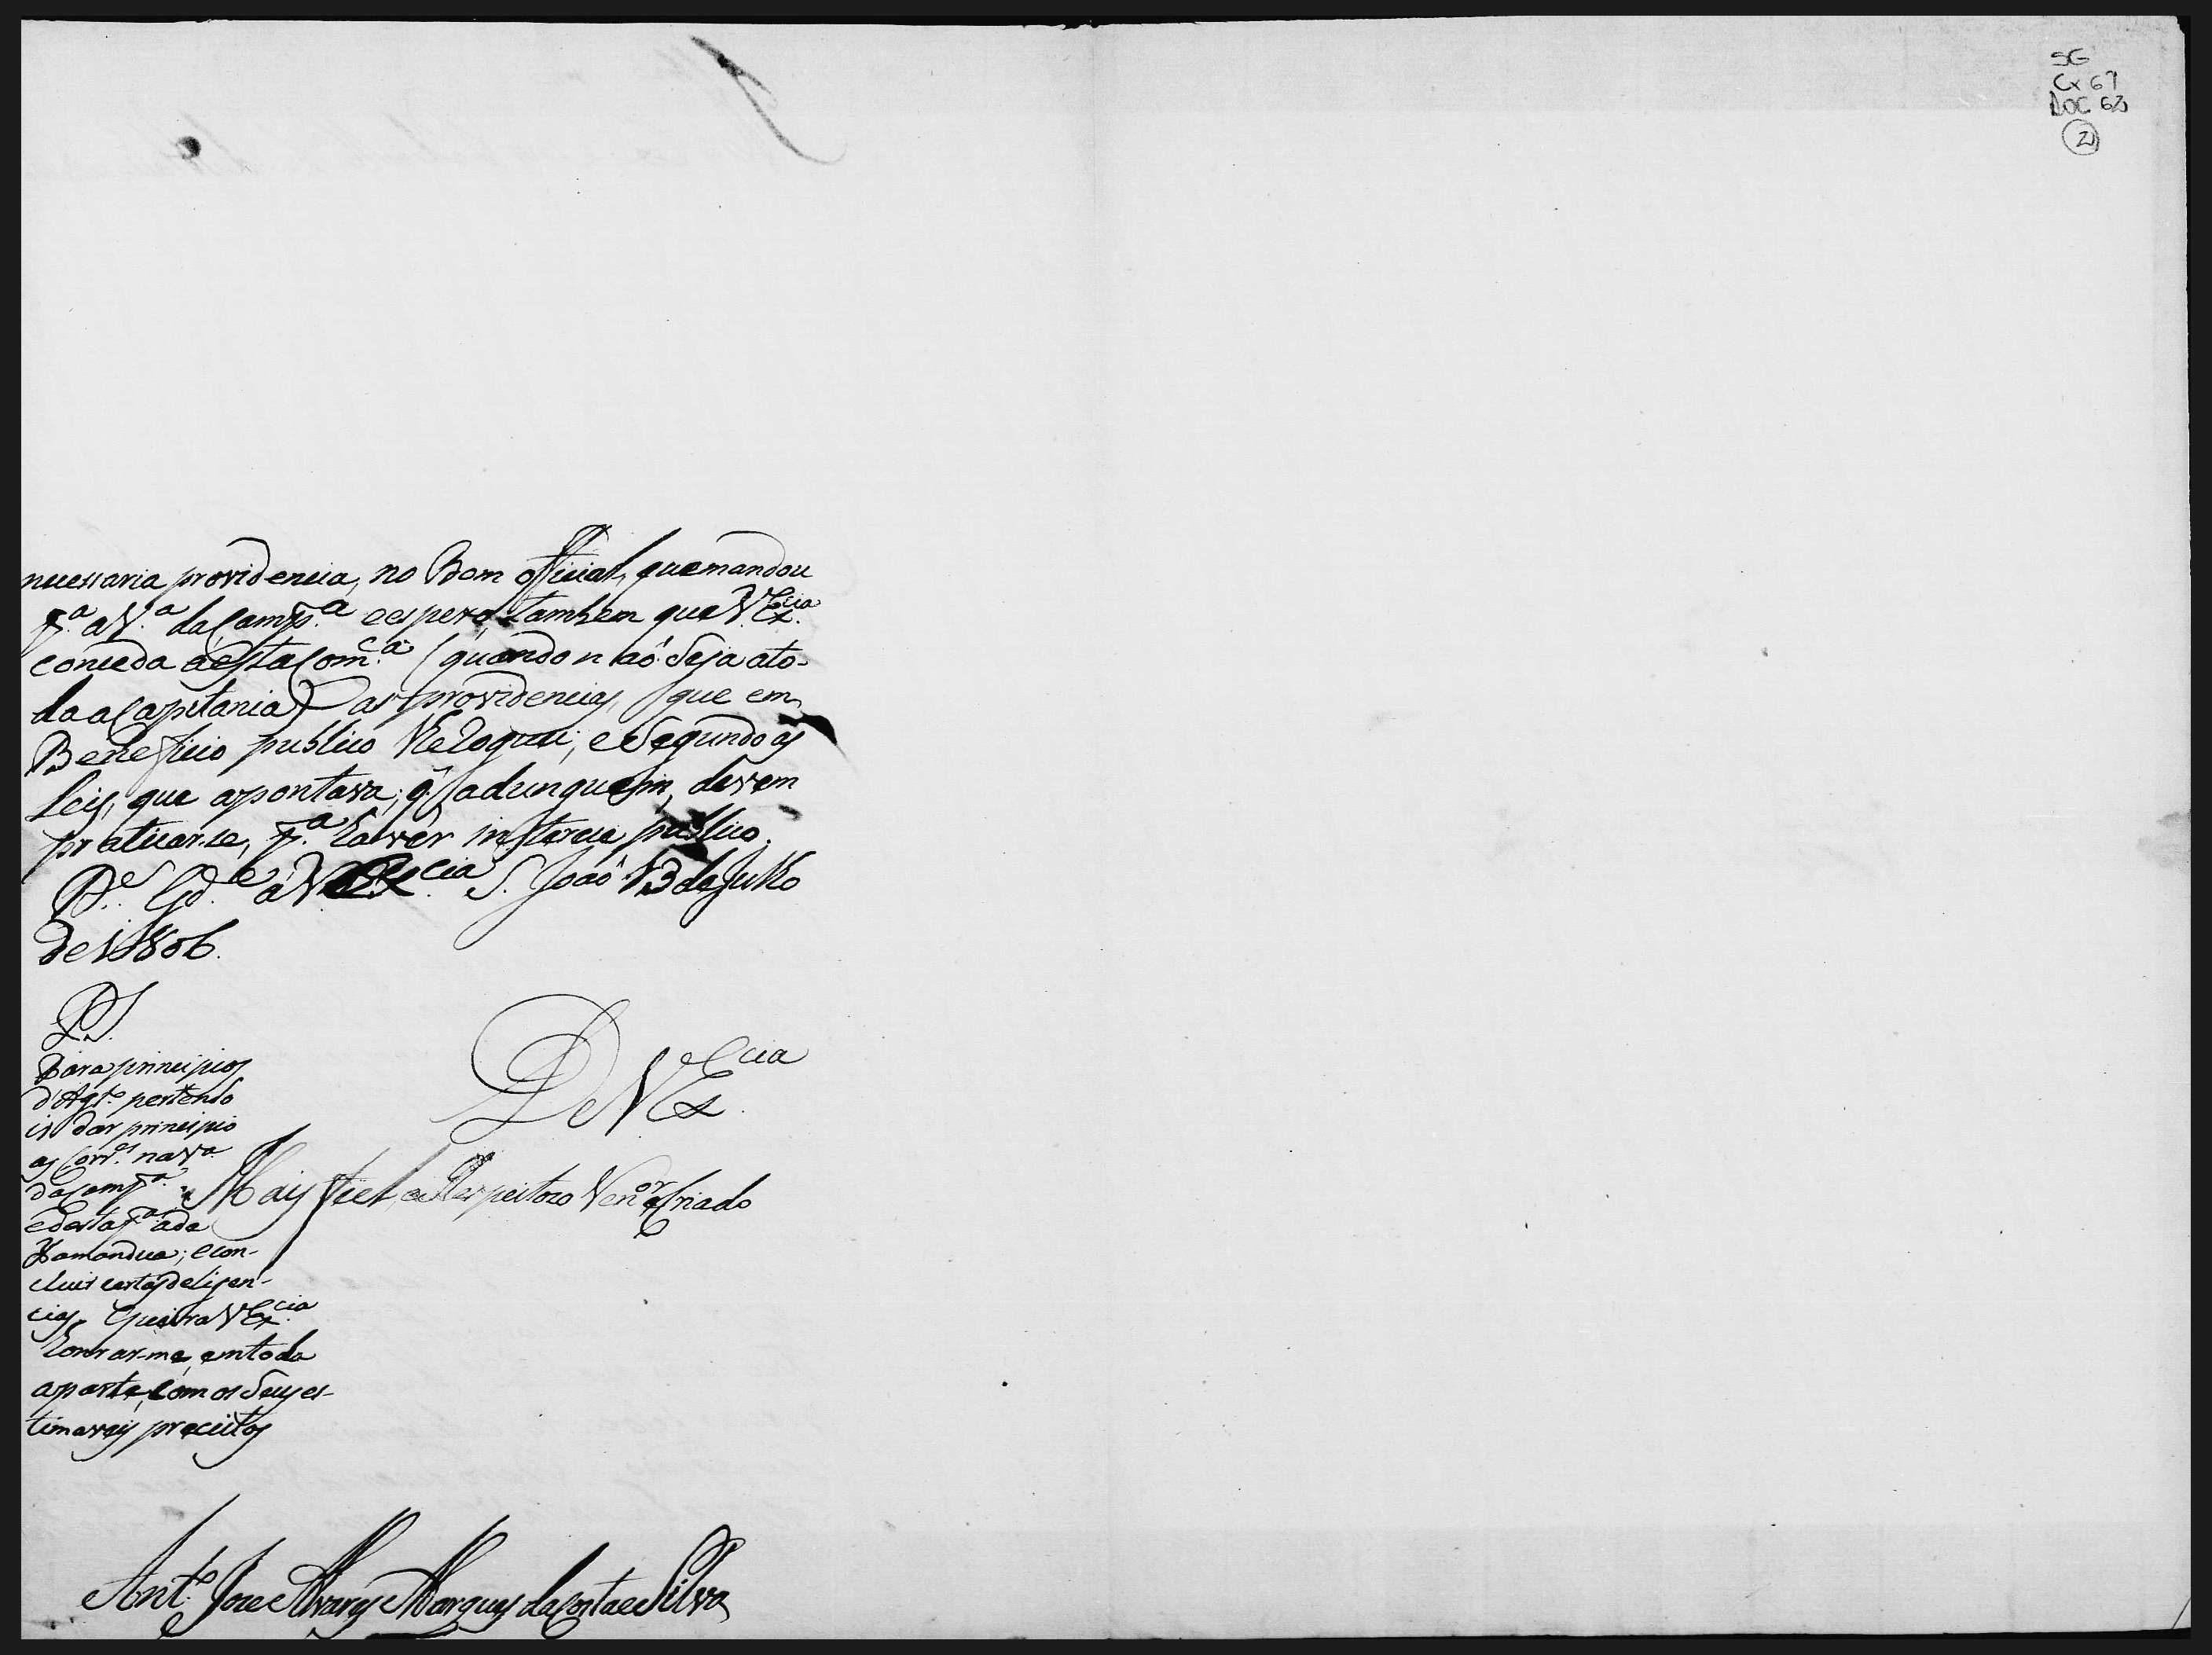 SG
Cx 67
DOC 62
2
necessaria providencia, no Bom official, que mandou
p.ª a V.ª da Camp.ª e espero tambem que V. Ex.cia
conceda a esta Com.ca (quando naõ seja a to-
da a Capitania) as providencias, que em
Beneficio publico lhe roguei, e Segundo as
Leis, que apontava; q' ad unguem, devem
praticar-se, p.ª haver
D.s G.de a V. Ex.cia S. Joaõ 13 de Julho
de 1806.
P.S.
Para principios
d'Ag.to pertendo
ir dar principio
as Corr.es na V.ª
da Camp.ª
e desta p.ª a da
Tamandua; e con-
cluir estas deligen-
cias. Queira V. Ex.cia
honrar-me em toda
a parte, com os Seus es-
timaveis preceitos
De V. Ex.cia
Mais fiel, e Respeitozo Ven.or e Criado
Ant.º Joze Alvares Marques da Costa e Silva